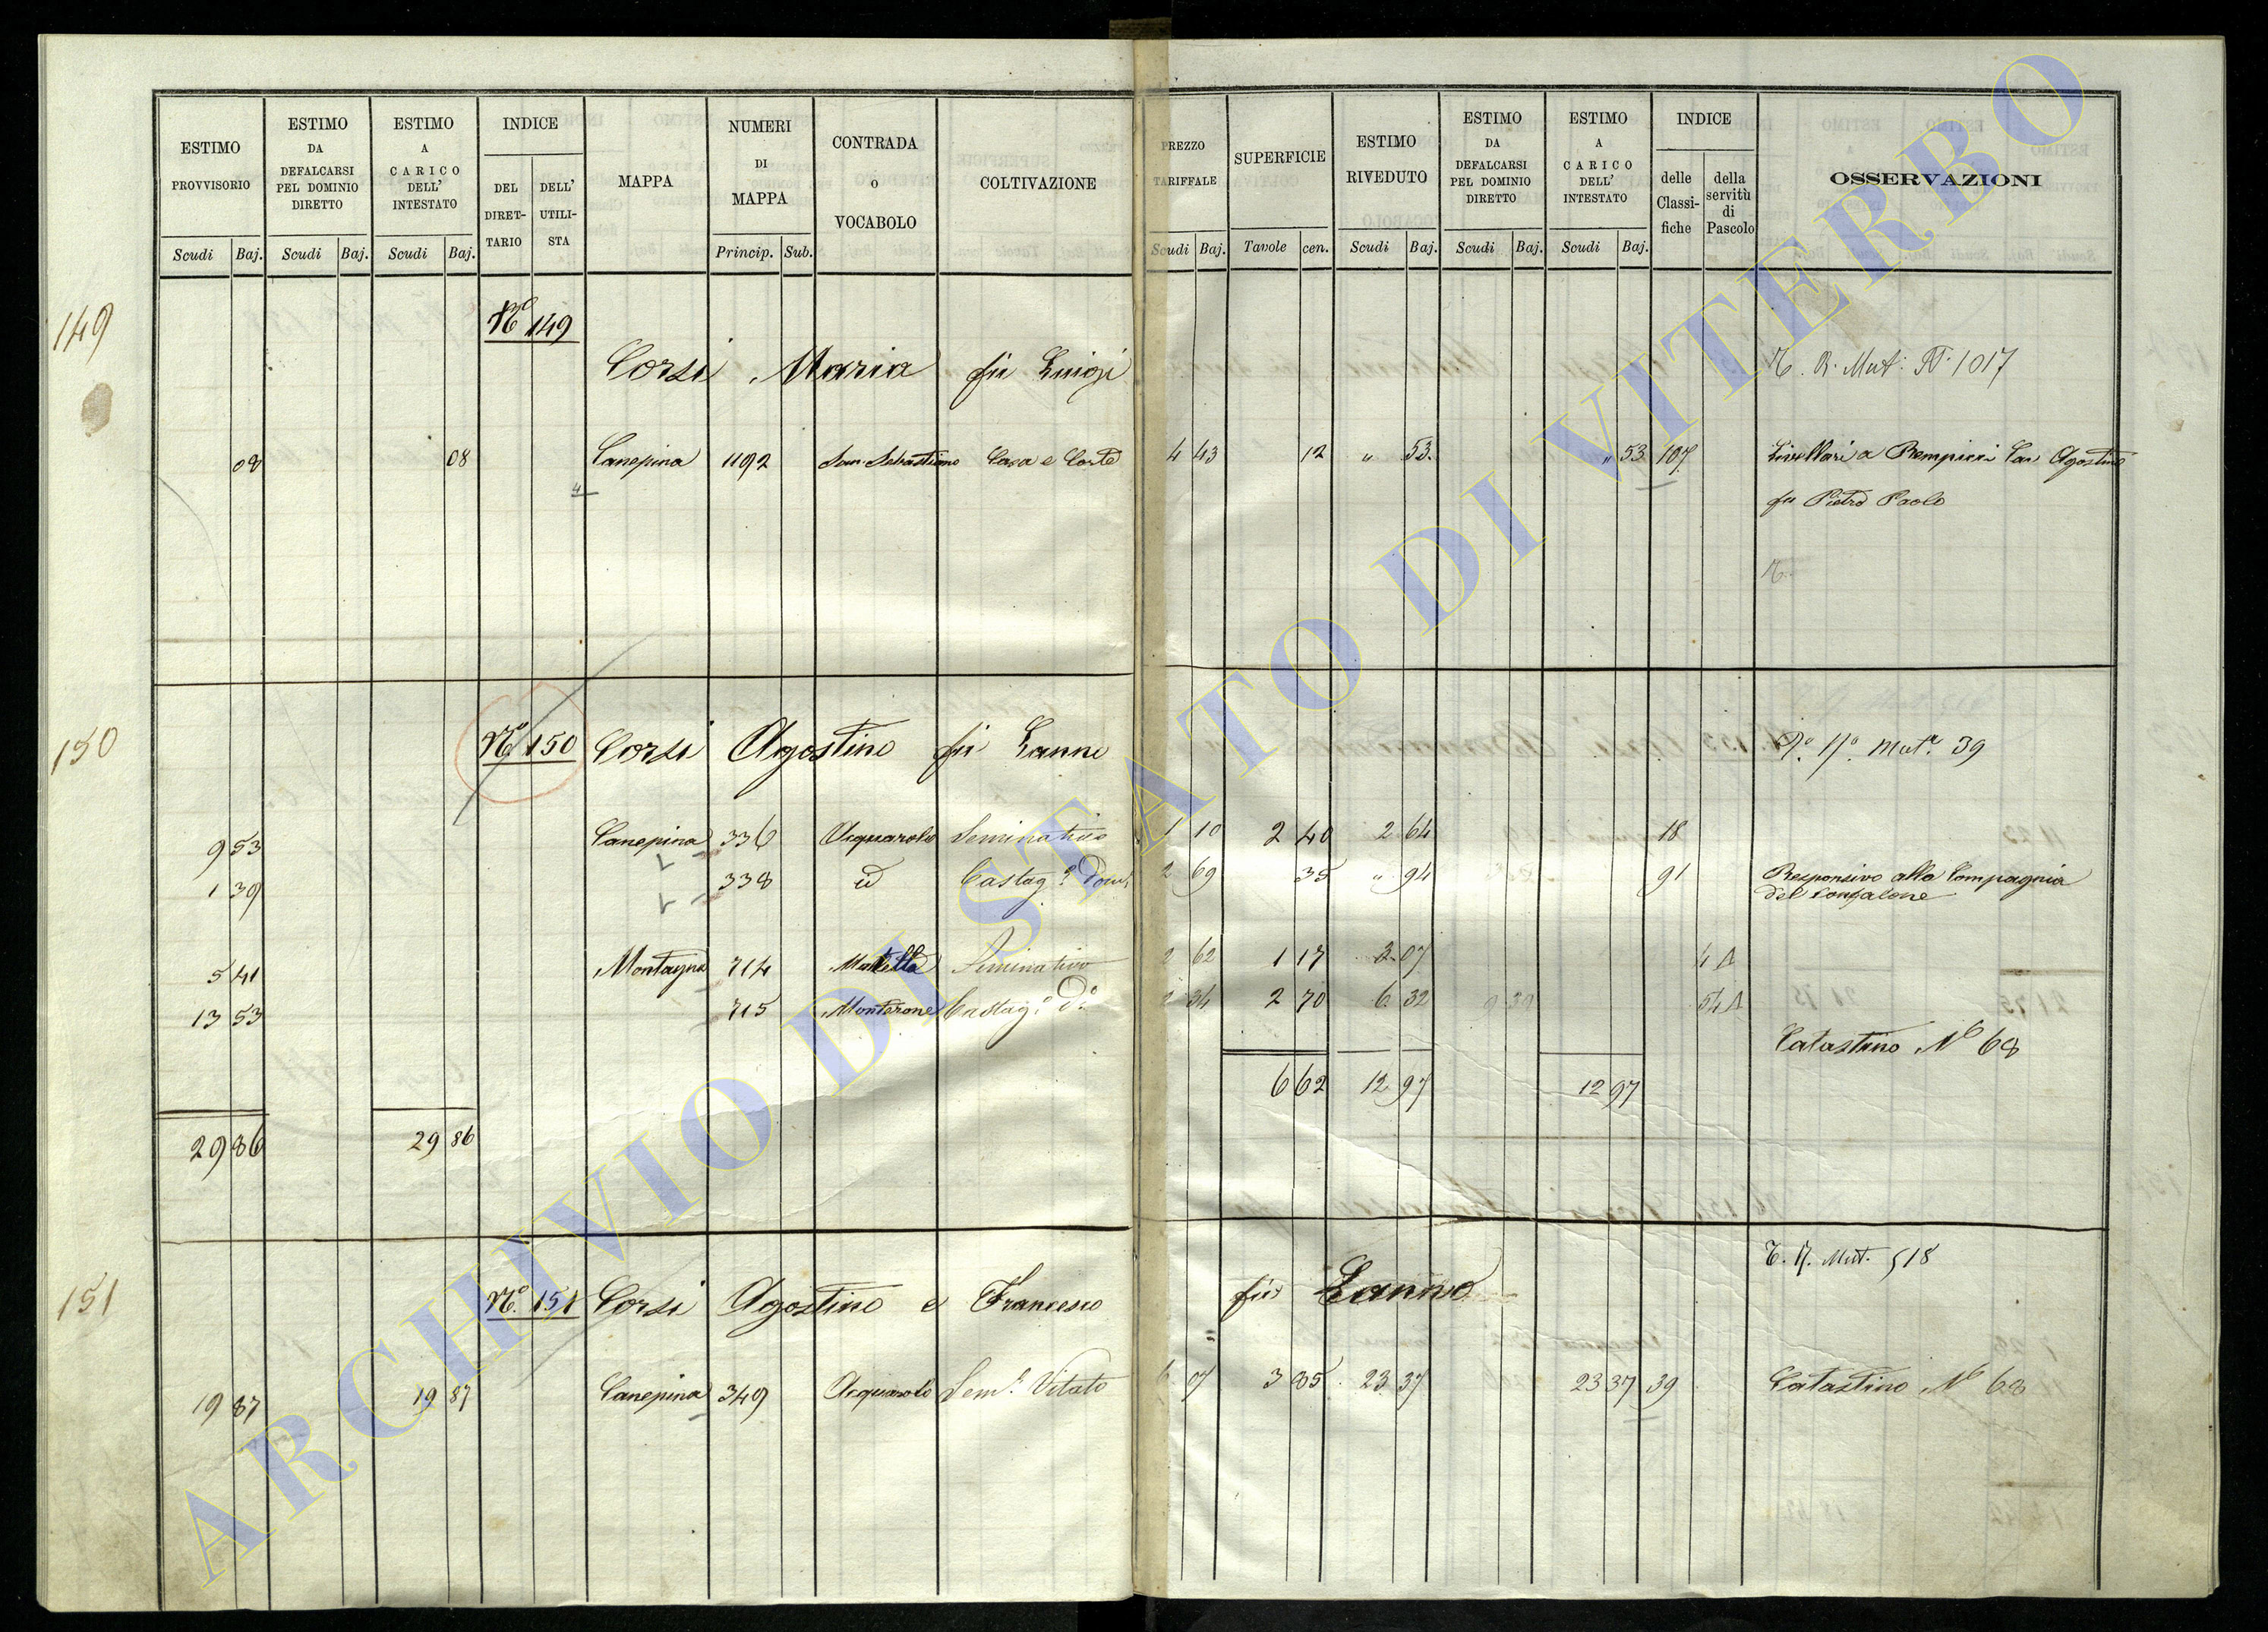 ESTIMO PROVVISORIO Scudi Baj.
ESTIMO DA DEFALCARSI PEL DOMINIO DIRETTO Scudi Baj.
ESTIMO A CARICO DELL' INTESTATO Scudi Baj.
INDICE DEL DIRET-TARIO DELL' UTILI-STA
MAPPA
NUMERI DI MAPPA Princip. Sub.
CONTRADA O VOCABOLO
COLTIVAZIONE
PREZZO TARIFFALE Scudi Baj.
SUPERFICIE Tavole cen.
ESTIMO RIVEDUTO Scudi Baj.
ESTIMO DA DEFALCARSI PEL DOMINIO DIRETTO Scudi Baj.
ESTIMO A CARICO DELL' INTESTATO Scudi Baj.
INDICE delle Classi-fiche della servitù di Pascolo
OSSERVAZIONI
149
Nº 149
Corsi Maria fu Luigi
Mut: Nº 1017
08 08 Canepina 1192 San Sebastiano Casa e Corte 4 43 12 " 53 " 53 107 Livellari a Agostino
4
fu Pietro Paolo
150
Nº 150 Corsi Agostino fu Zanno
Mutª. 39
9 53 Canepina 336 Acquarolo Seminativo 1 10 2 40 2 64 18
1
1 39 338 id Castagº Dom 2 69 35 " 94 91 Responsivo alla Compagnia
del Confalone
1
5 41 Montagna 714 Seminativo 2 62 1 17 3 07 4 A
13 53 715 Monterone Castagº Dº 2 34 2 70 6 32 9 39 54 A
Catastino Nº 68
6 62 12 97 12 97
29 86 29 86
151
T. N. Mut. 518
Nº 151 Corsi Agostino e Francesco fu Zanno
19 87 19 87 Canepina 349 Acquarolo Semº Vitato 6 07 3 85 23 37 23 37 39 Catastino Nº 68
ARCHIVIO DI STATO DI VITERBO